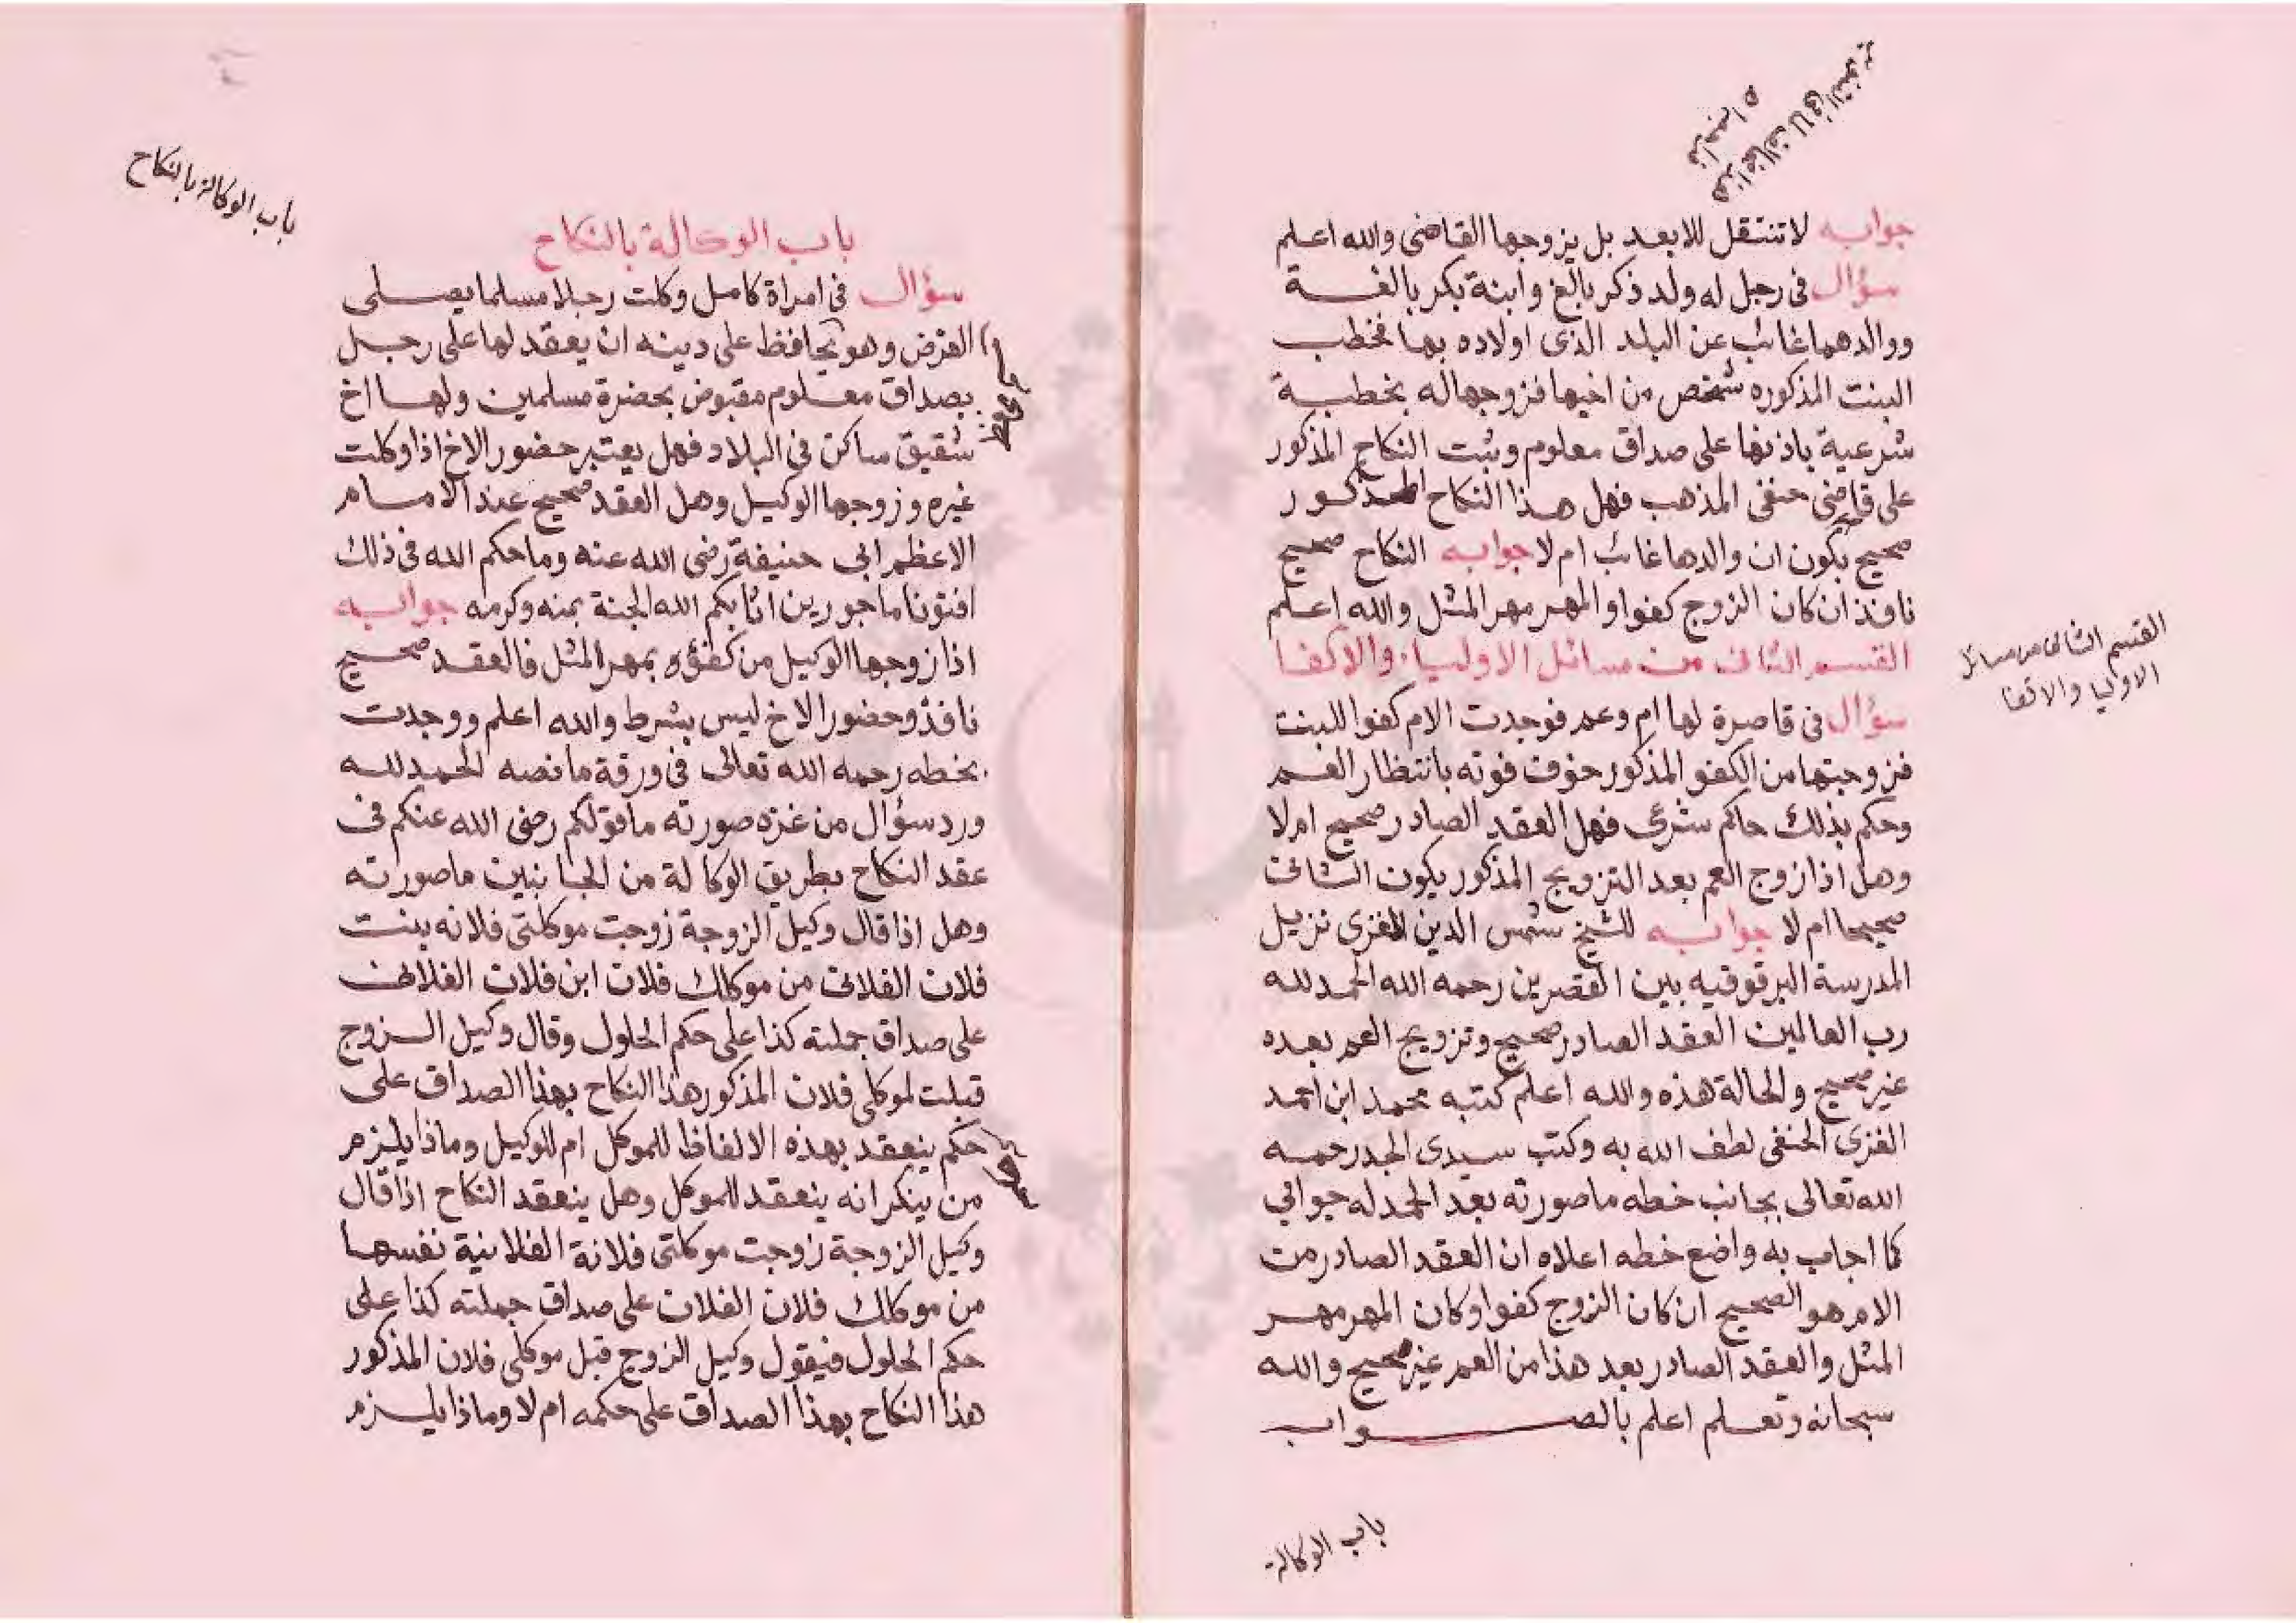 هذا مخالف لما فى التنوير
فراجعه اه
جوابه لا تنتقل للابعد بل يزوجها القاضى والله اعلم
سؤال فى رجل له ولد ذكر بالغ وابنة بكر بالغة
ووالدهما غائب عن البلد الذى اولاده بها فخطب
البنت المذكوره شخص من اخيها فزوجها له بخطبة
شرعية باذنها على صداق معلوم وثبت النكاح المذكور
على قاضى حنفى المذهب فهل هذا النكاح المذكور
صحيح بكون ان والدها غائب ام لا جوابه النكاح صحيح
نافذ ان كان الزوج كفوا والمهر مهر المثل والله اعلم
القسم الثانى من مسائل الاولياء والاكفا
القسم الثانى من مسائل
الاوليا والاكفا
سؤال فى قاصرة لها ام وعم فوجدت الام كفوا للبنت
فزوجتها من الكفو المذكور خوف فوته بانتظار العم
وحكم بذلك حاكم شرعى فهل العقد الصادر صحيح ام لا
وهل اذا زوج العم بعد التزويج المذكور يكون الثانى
صحيحا ام لا جوابه للشيخ شمس الدين الغزى نزيل
المدرسة البرقوقيه بين القصرين رحمه الله الحمد لله
رب العالمين العقد الصادر صحيح وتزويج العم بعده
غير صحيح والحالة هذه والله اعلم كتبه محمد ابن احمد
الغزى الحنفى لطف الله به وكتب سيدى الجد رحمه
الله تعالى بجانب خطه ما صورته بعد الحمد له جوابي
كما اجاب به واضع خطه اعلاه ان العقد الصادر من
الام هو الصحيح ان كان الزوج كفوا وكان المهر مهر
المثل والعقد الصادر بعد هذا من العم غير صحيح والله
سبحانه وتعلم اعلم بالصواب
باب الوكالة
باب الوكالة بالنكاح
باب الوكالة بالنكاح
سؤال فى امراة كامل وكلت رجلا مسلما يصلى
الفرض وهو يحافظ على دينه ان يعقد لها على رجل
بصداق معلوم مقبوض بحضرة مسلمين ولها اخ
شقيق ساكن فى البلاد فهل يعتبر حضور الاخ اذا وكلت
غيره وزوجها الوكيل وهل العقد صحيح عند الامام
الاعظم ابى حنيفة رضى الله عنه وما حكم الله فى ذلك
افتونا ماجورين اثابكم الله الجنة بمنه وكرمه جوابه
اذا زوجها الوكيل من كفؤه بمهر المثل فالعقد صحيح
نافذ وحضور الاخ ليس بشرط والله اعلم ووجدت
بخطه رحمه الله تعالى فى ورقة ما نصه الحمد لله
ورد سؤال من غزه صورته ما قولكم رضى الله عنكم فى
عقد النكاح بطريق الوكالة من الجانبين ما صورته
وهل اذا قال وكيل الزوجة زوجت موكلتى فلانه بنت
فلان الفلانى من موكلك فلان ابن فلان الفلانى
على صداق جملته كذا على حكم الحلول وقال وكيل الزوج
قبلت لموكلى فلان المذكور هذا النكاح بهذا الصداق على
حكم ينعقد بهذه الالفاظ للموكل ام للوكيل وماذا يلزم
من ينكر انه ينعقد للموكل وهل ينعقد النكاح اذا قال
وكيل الزوجة زوجت موكلتى فلانة الفلانية نفسها
من موكلك فلان الفلان على صداق جملته كذا على
حكم الحلول فيقول وكيل الزوج قبل موكلى فلان المذكور
هذا النكاح بهذا الصداق على حكمه ام لا وماذا يلزم